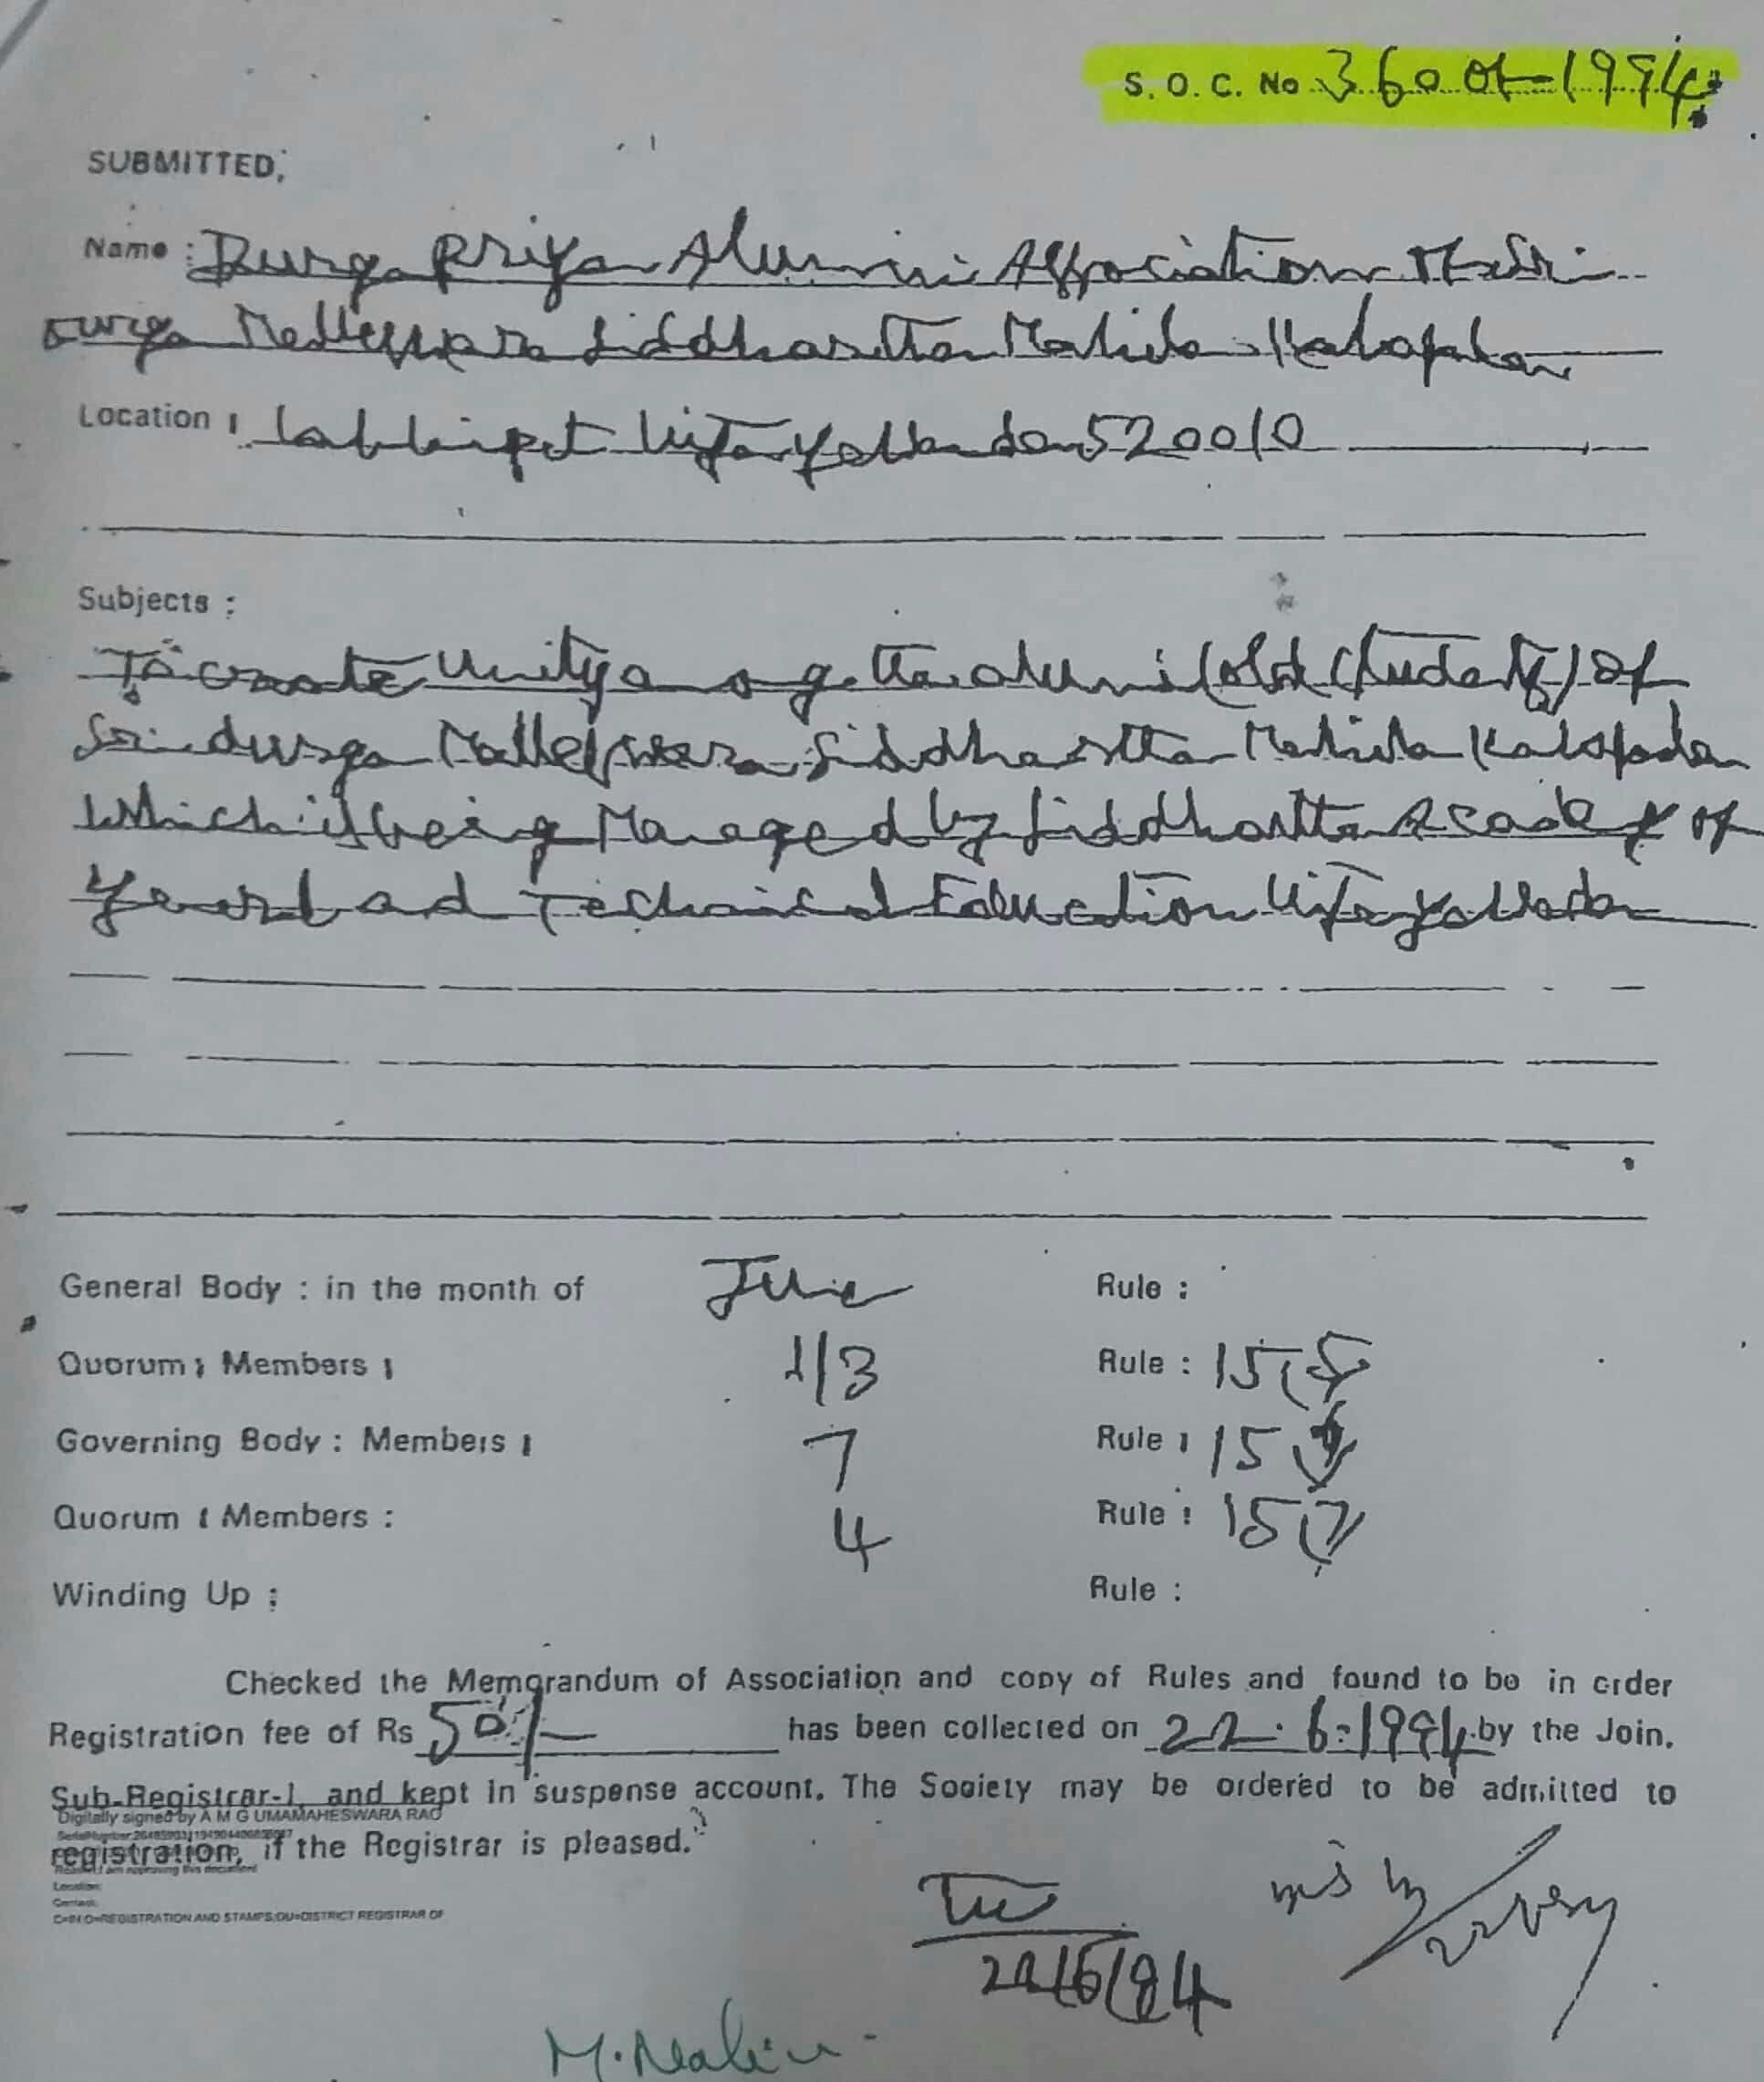 S. O. C. No 360 of 1994
SUBMITTED,
Name : Durga Priya Alumni Association of Sri
Durga Malleswara Siddhartha Mahila Kalasala
Location : Labbipet Vijayawada 520010
Subjects :
To create unity among the alumni (old students) of
Sri durga Malleswara Siddhartha Mahila Kalasala
Which is being Managed by Siddhartha Academy of
General and Technical Education Vijayawada
General Body : in the month of June Rule :
Quorum : Members : 1/3 Rule : 15
Governing Body : Members : 7 Rule : 15
Quorum : Members : 4 Rule : 15(7)
Winding Up : Rule :
Checked the Memorandum of Association and copy of Rules and found to be in order
Registration fee of Rs 50/- has been collected on 22.6.1994 by the Join.
Sub-Registrar-I, and kept in suspense account. The Society may be ordered to be admitted to
Digitally signed by A M G UMAMAHESWARA RAO
registration, if the Registrar is pleased.
Reason: I am approving this document
Location:
Contact:
C=IN O=REGISTRATION AND STAMPS,OU=DISTRICT REGISTRAR OF
22/6/94
M. Nalini